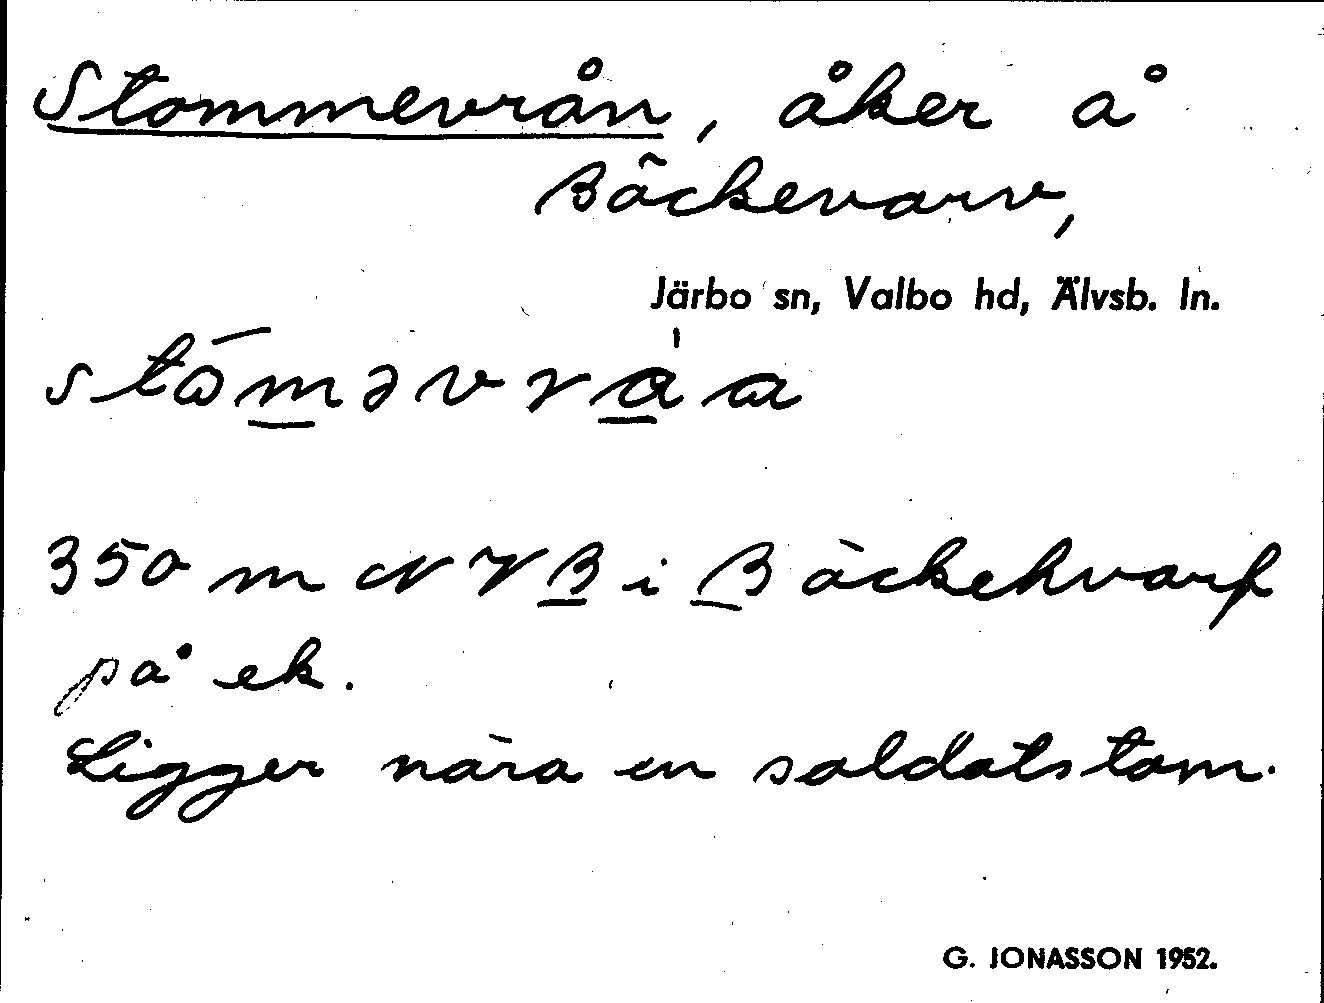 Stommevrån, åker å
Bäckevarv,
Järbo sn, Valbo hd, Älvsb. ln.
350 m NVB i Bäckehvarf
på ek.
Ligger nära en soldatstom.
G. JONASSON 1952.